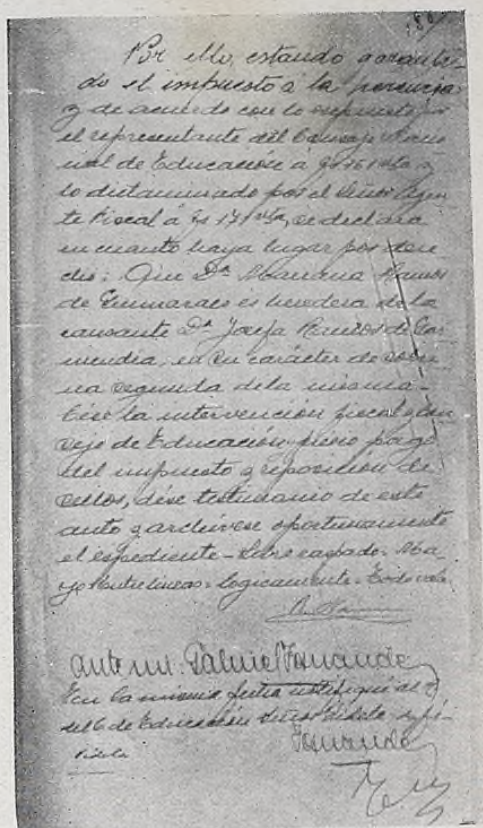 Por ello, estando garanti-
do el impuesto á la herencia
y de acuerdo con lo expuesto por
el representante del Consejo Nacio
nal de Educación a fs 161 vta y
lo dictaminado por el Señor Agen
te Fiscal a fs 171 vta, se declara
en cuanto haya lugar por dere
cho: Que Dª Mariana Ramos
de Guimaraes es heredera de la
causante Dª Josefa Ramos de Gar
mendia, en su carácter de sobri
na segunda de la misma-
la intervención fiscal y Con
sejo de Educación previo pago
del impuesto y reposición de
sellos, dése testimonio de este
auto y archívese oportunamente
el expediente - Sobre raspado - Ma
yo - Entre lineas - logicamente - Todo vale
Ante mi: Gabriel Fernandez
En la misma fecha notifiqué al
del C de Educación Señor Videla y fir
Videla Fernandez